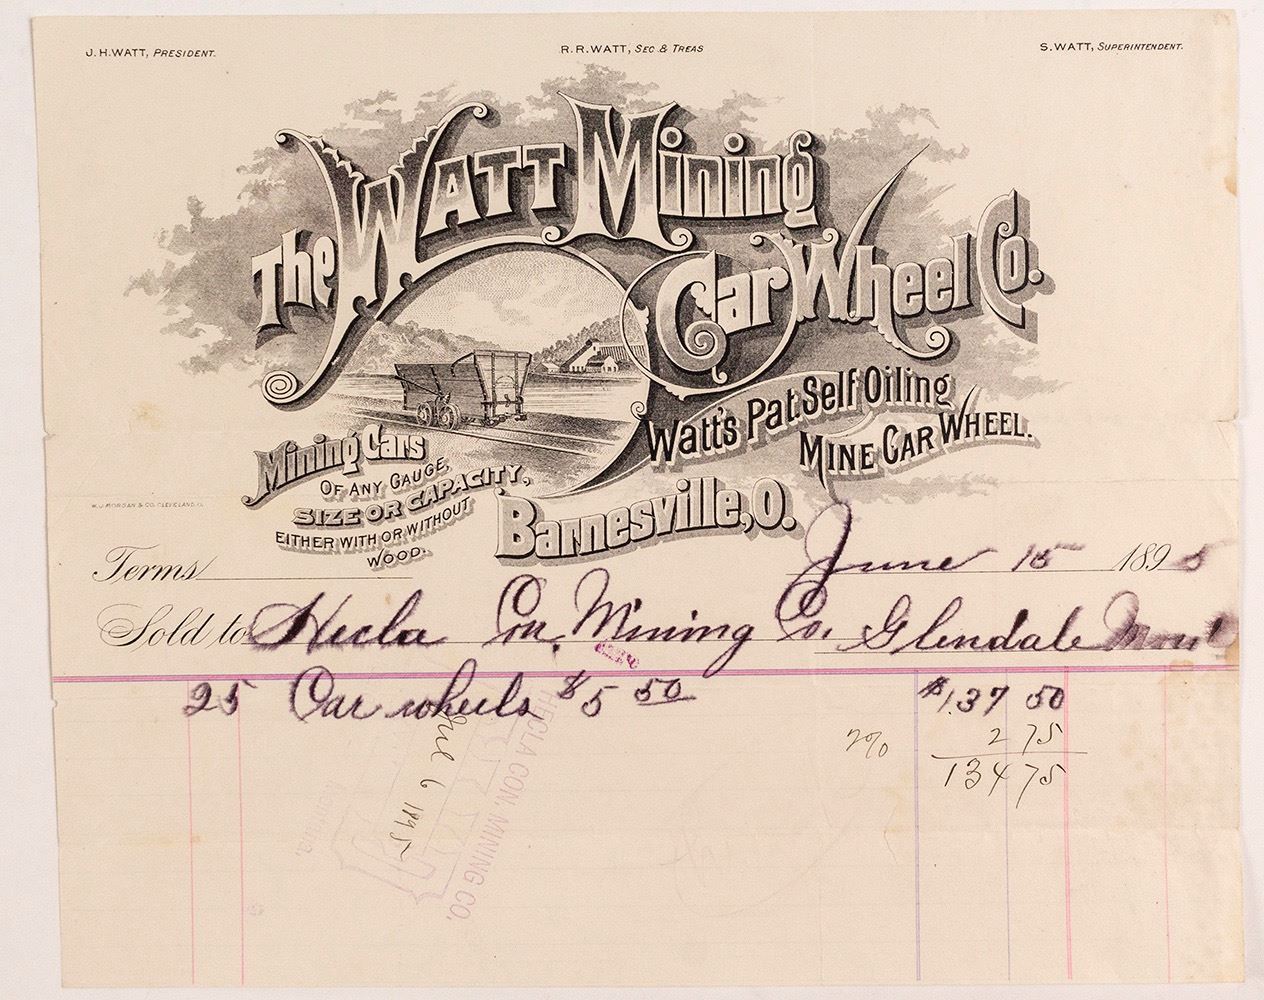 J. H. WATT, PRESIDENT.
R. R. WATT, SEC. & TREAS
S. WATT, SUPERINTENDENT.
The WATT Mining
Car Wheel Co.
Watt's Pat. Self Oiling
MINE CAR WHEEL.
Mining Cars
OF ANY GAUGE,
SIZE OR CAPACITY,
EITHER WITH OR WITHOUT
WOOD.
Barnesville, O.
W.J. MORGAN & CO. CLEVELAND, O.
June 15 1895
Terms
Sold to Hecla Con. Mining Co. Glendale Mont
25 Car wheels, $5 50 $137 50
2% 2 75
134 75
HECLA CON. MINING CO.
6 1895